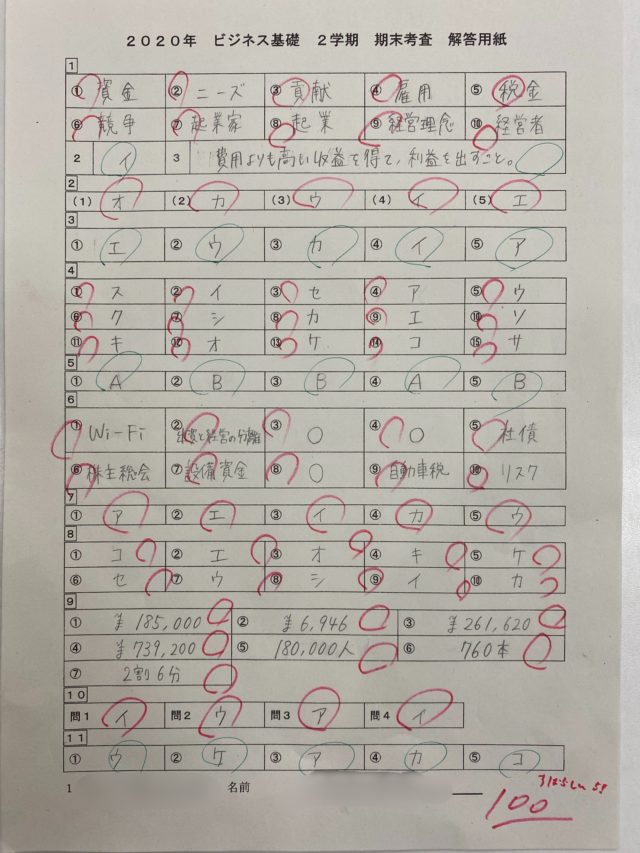 ２０２０年　ビジネス基礎　２学期　期末考査　解答用紙
1
① 資金 ② ニーズ ③ 貢献 ④ 雇用 ⑤ 税金
⑥ 競争 ⑦ 起業家 ⑧ 起業 ⑨ 経営理念 ⑩ 経営者
2 イ 3 費用よりも高い収益を得て、利益を出すこと。
2
(1) オ (2) カ (3) ウ (4) イ (5) エ
3
① エ ② ウ ③ カ ④ イ ⑤ ア
4
① ス ② イ ③ セ ④ ア ⑤ ウ
⑥ ク ⑦ シ ⑧ カ ⑨ エ ⑩ ソ
⑪ キ ⑫ オ ⑬ ケ ⑭ コ ⑮ サ
5
① A ② B ③ B ④ A ⑤ B
6
① Wi-Fi ② 経営の分離 ③ ○ ④ ○ ⑤ 社債
⑥ 株主総会 ⑦ 設備資金 ⑧ ○ ⑨ 自動車税 ⑩ リスク
7
① ア ② エ ③ イ ④ カ ⑤ ウ
8
① コ ② エ ③ オ ④ キ ⑤ ケ
⑥ セ ⑦ ウ ⑧ シ ⑨ イ ⑩ カ
9
① ¥185,000 ② ¥6,946 ③ ¥261,620
④ ¥739,200 ⑤ 180,000人 ⑥ 760本
⑦ 2割6分
10
問1 イ 問2 ウ 問3 ア 問4 イ
11
① ウ ② ケ ③ ア ④ カ ⑤ コ
1 名前
すばらしい!!
100